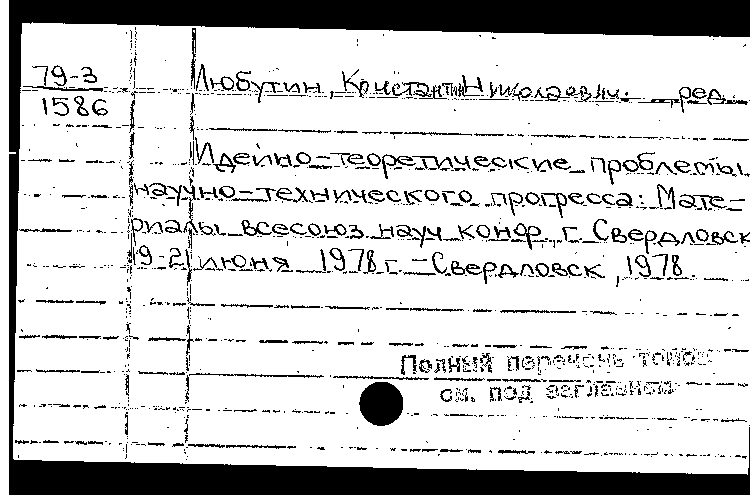 79-3
1586
Любутин, Константин Николаевич. , ред.
Идейно-теоретические проблемы
научно-технического прогресса: Мате-
риалы всесоюз. науч. конф., г. Свердловск
19-21 июня 1978 г. - Свердловск, 1978.
Полный перечень томов
см. под заглавием